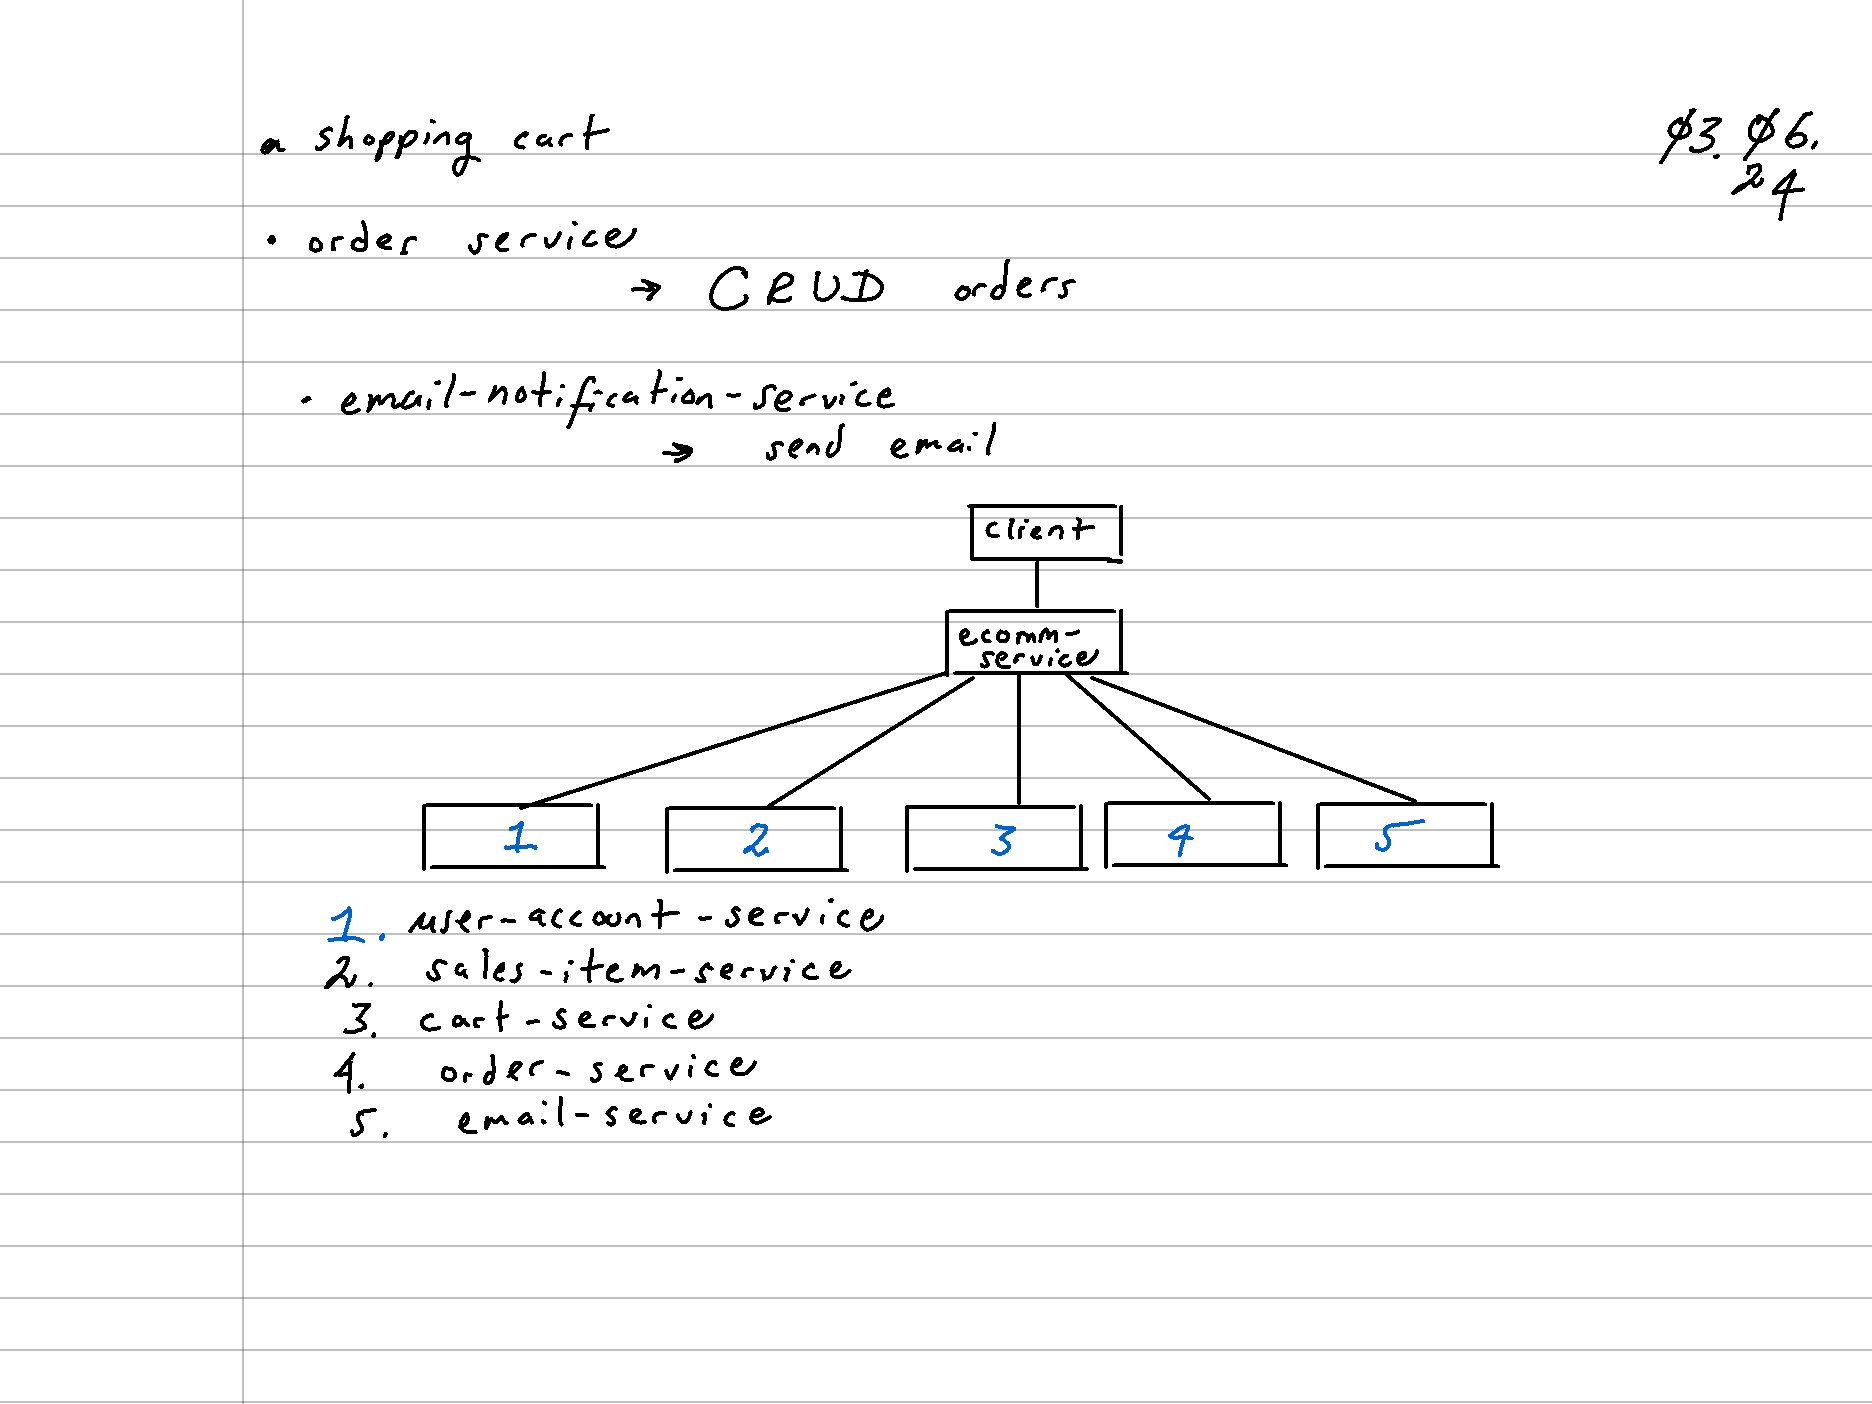 a shopping cart
Ø3. Ø6.
24
• order service
→ CRUD orders
• email-notification-service
→ send email
client
ecomm-
service
1 2 3 4 5
1. user-account-service
2. sales-item-service
3. cart-service
4. order-service
5. email-service